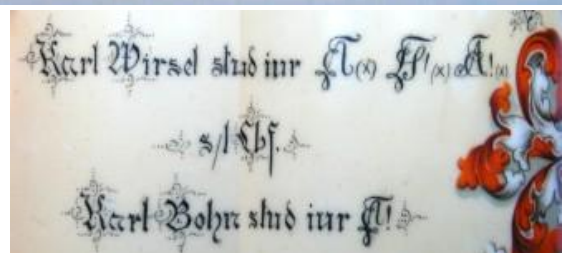 Karl Wirsel stud iur (x) (x) (x)
s/l Cbf.
Karl Bohn stud iur